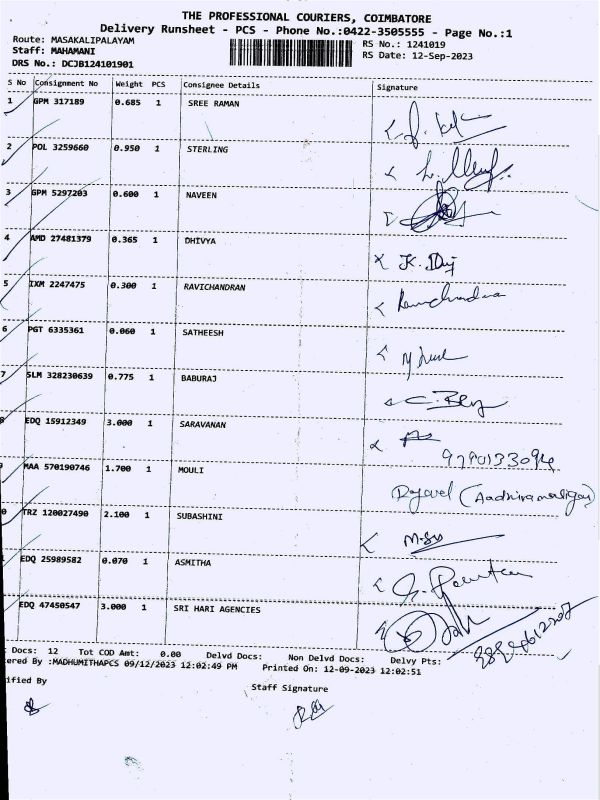 THE PROFESSIONAL COURIERS, COIMBATORE
Delivery Runsheet - PCS - Phone No.:0422-3505555 - Page No.:1
Route: MASAKALIPALAYAM
Staff: MAHAMANI
DRS No.: DCJB124101901
RS No.: 1241019
RS Date: 12-Sep-2023
S No Consignment No Weight PCS Consignee Details Signature
1 GPM 317189 0.685 1 SREE RAMAN
2 POL 3259660 0.950 1 STERLING
3 GPM 5297203 0.600 1 NAVEEN
4 AMD 27481379 0.365 1 DHIVYA
5 IXM 2247475 0.300 1 RAVICHANDRAN
6 PGT 6335361 0.060 1 SATHEESH
7 SLM 328230639 0.775 1 BABURAJ
EDQ 15912349 3.000 1 SARAVANAN
MAA 570190746 1.700 1 MOULI
0 TRZ 120027490 2.100 1 SUBASHINI
EDQ 25989582 0.070 1 ASMITHA
EDQ 47450547 3.000 1 SRI HARI AGENCIES
Docs: 12 Tot COD Amt: 0.00 Delvd Docs: Non Delvd Docs: Delvy Pts:
ered By :MADHUMITHAPCS 09/12/2023 12:02:49 PM Printed On: 12-09-2023 12:02:51
ified By
Staff Signature